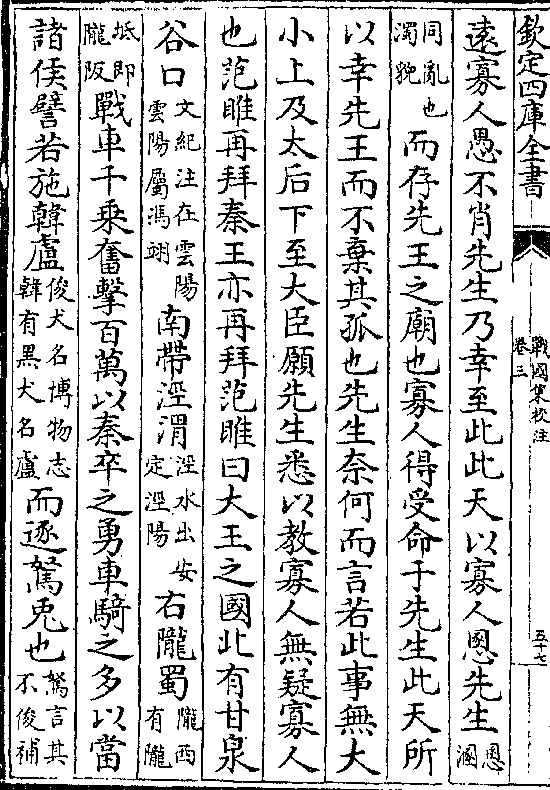 欽定四庫全書
戰國策校注
卷三
五十七
遠寡人愚不肖先生乃幸至此此天以寡人慁先生慁溷
同亂也濁貌而存先王之廟也寡人得受命于先生此天所
以幸先王而不棄其孤也先生奈何而言若此事無大
小上及太后下至大臣願先生悉以教寡人無疑寡人
也范睢再拜秦王亦再拜范睢曰大王之國北有甘泉
谷口文紀注在雲陽雲陽屬馮翊南帶涇渭涇水出安定涇陽右隴蜀隴西有隴
坻即隴阪戰車千乘奮擊百萬以秦卒之勇車騎之多以當
諸侯譬若施韓盧俊犬名博物志韓有黑犬名盧而逐駑兔也駑言其不俊補